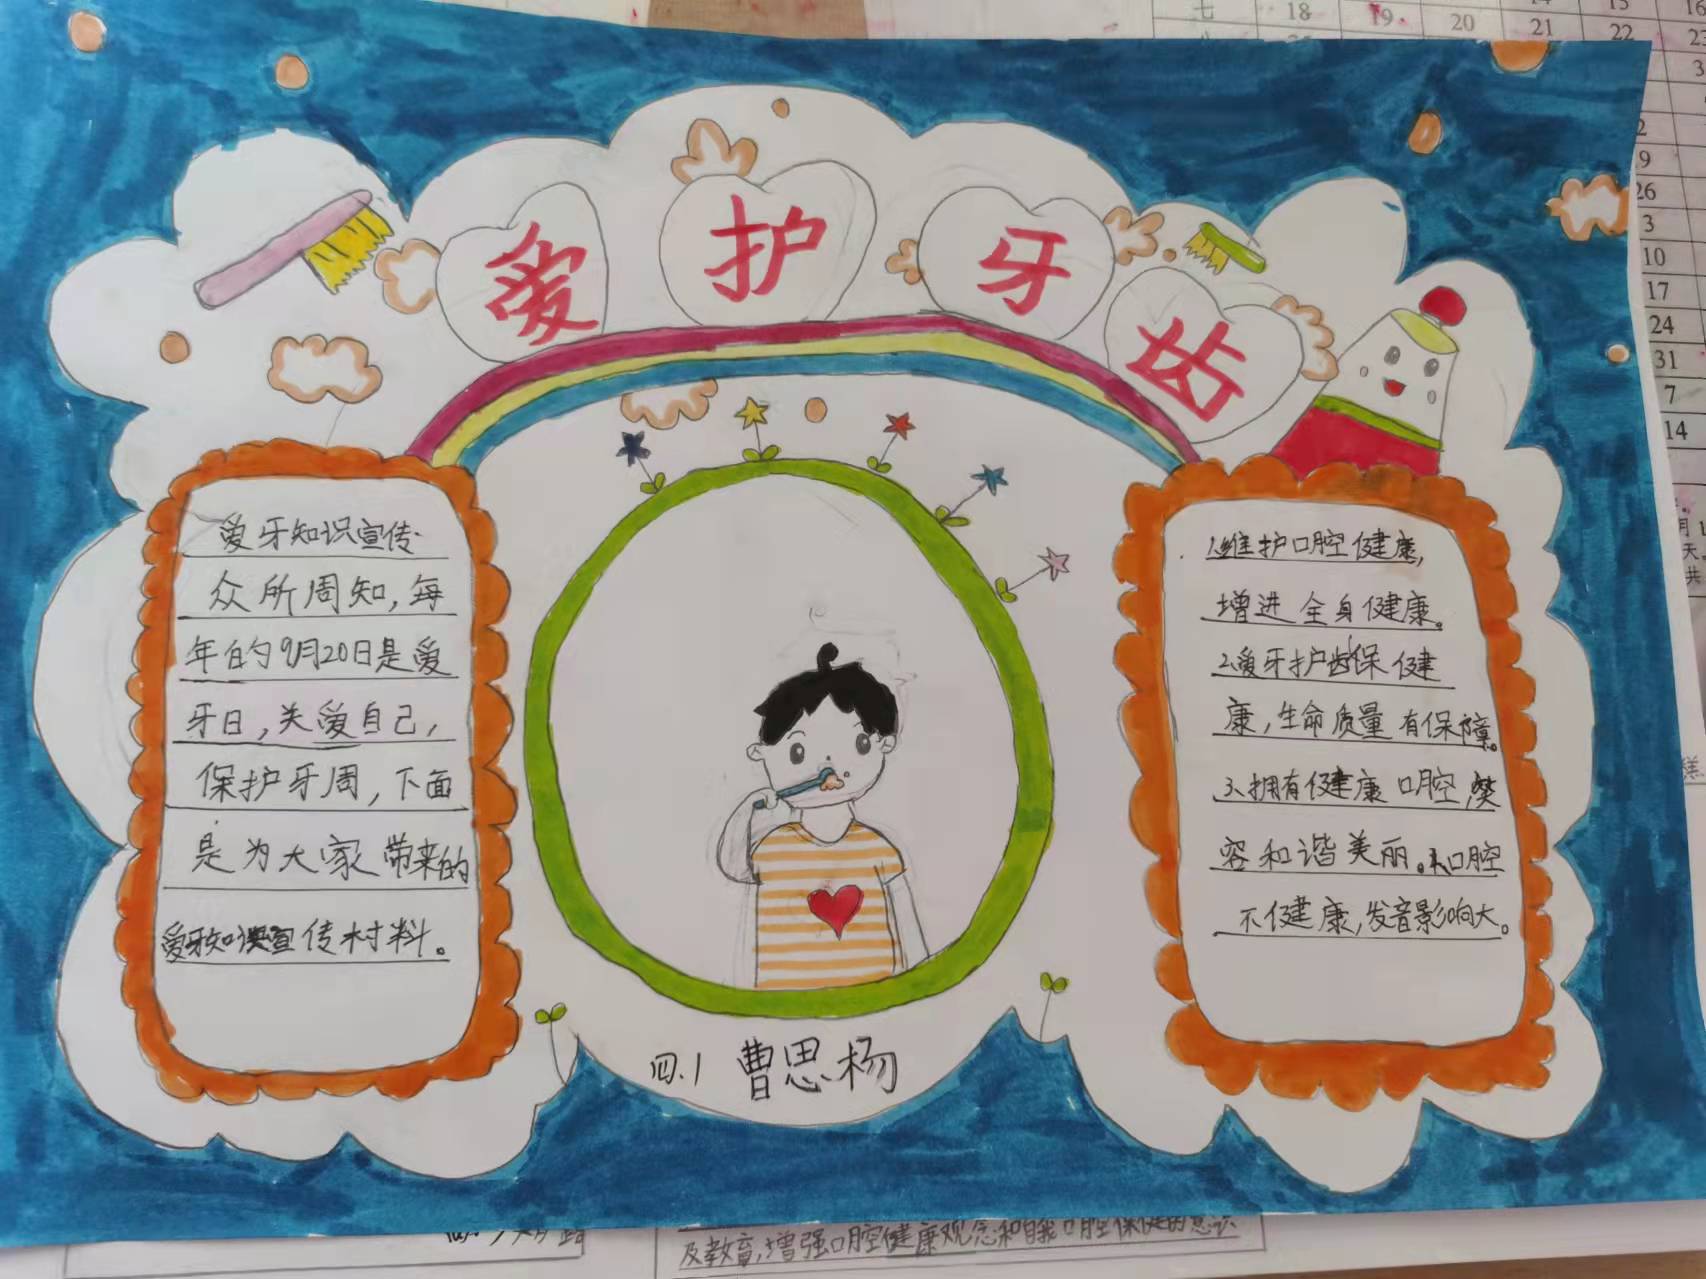 七 18 19 20 21 22
爱护牙齿
爱牙知识宣传
众所周知,每
年的9月20日是爱
牙日,关爱自己,
保护牙周,下面
是为大家带来的
爱牙知识宣传材料。
1.维护口腔健康,
增进全身健康。
2.爱牙护齿保健
康,生命质量有保障。
3、拥有健康口腔,笑
容和谐美丽。4、口腔
不健康,发音影响大。
四.1 曹思杨
26
3
10
17
24
31
7
14
及教育,增强口腔健康观念和自我口腔保健的意识